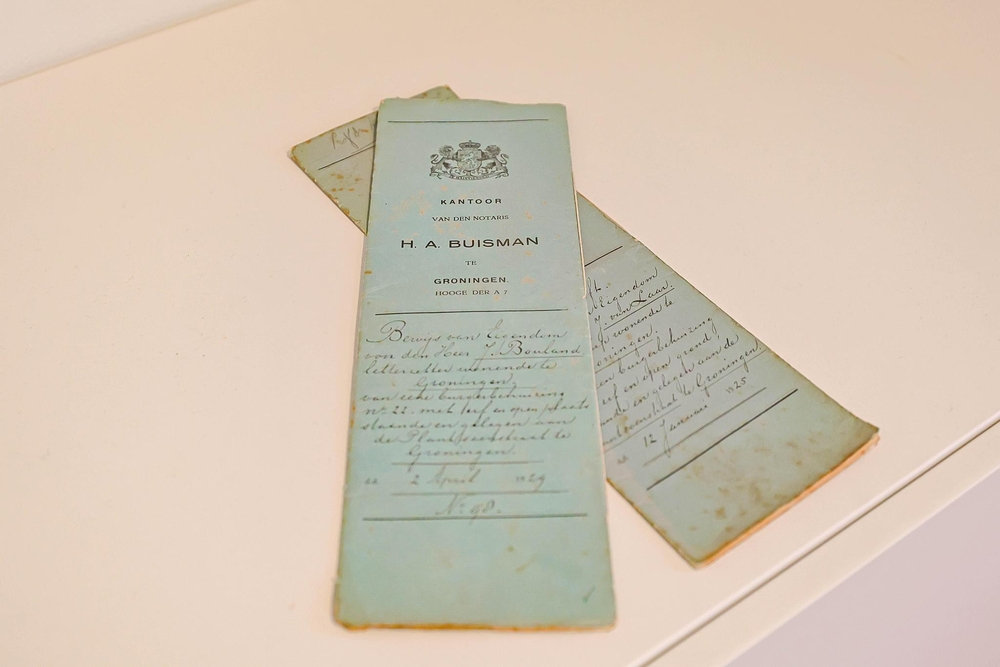 KANTOOR
VAN DEN NOTARIS
H. A. BUISMAN
TE
GRONINGEN.
HOOGE DER A 7
Bewijs van Eigendom
van den Heer J. Bouland
letterzetter wonende te
Groningen.
van eene burgerbehuizing
No. 22. met erf en open plaats
staande en gelegen aan
de Plantsoenstraat te
Groningen.
2 April 1929
No. 98.
Eigendom
J. van Laar.
wonende te
burgerbehuizing
erf en open grond,
en gelegen aan de
te Groningen.
12 Januari 1925